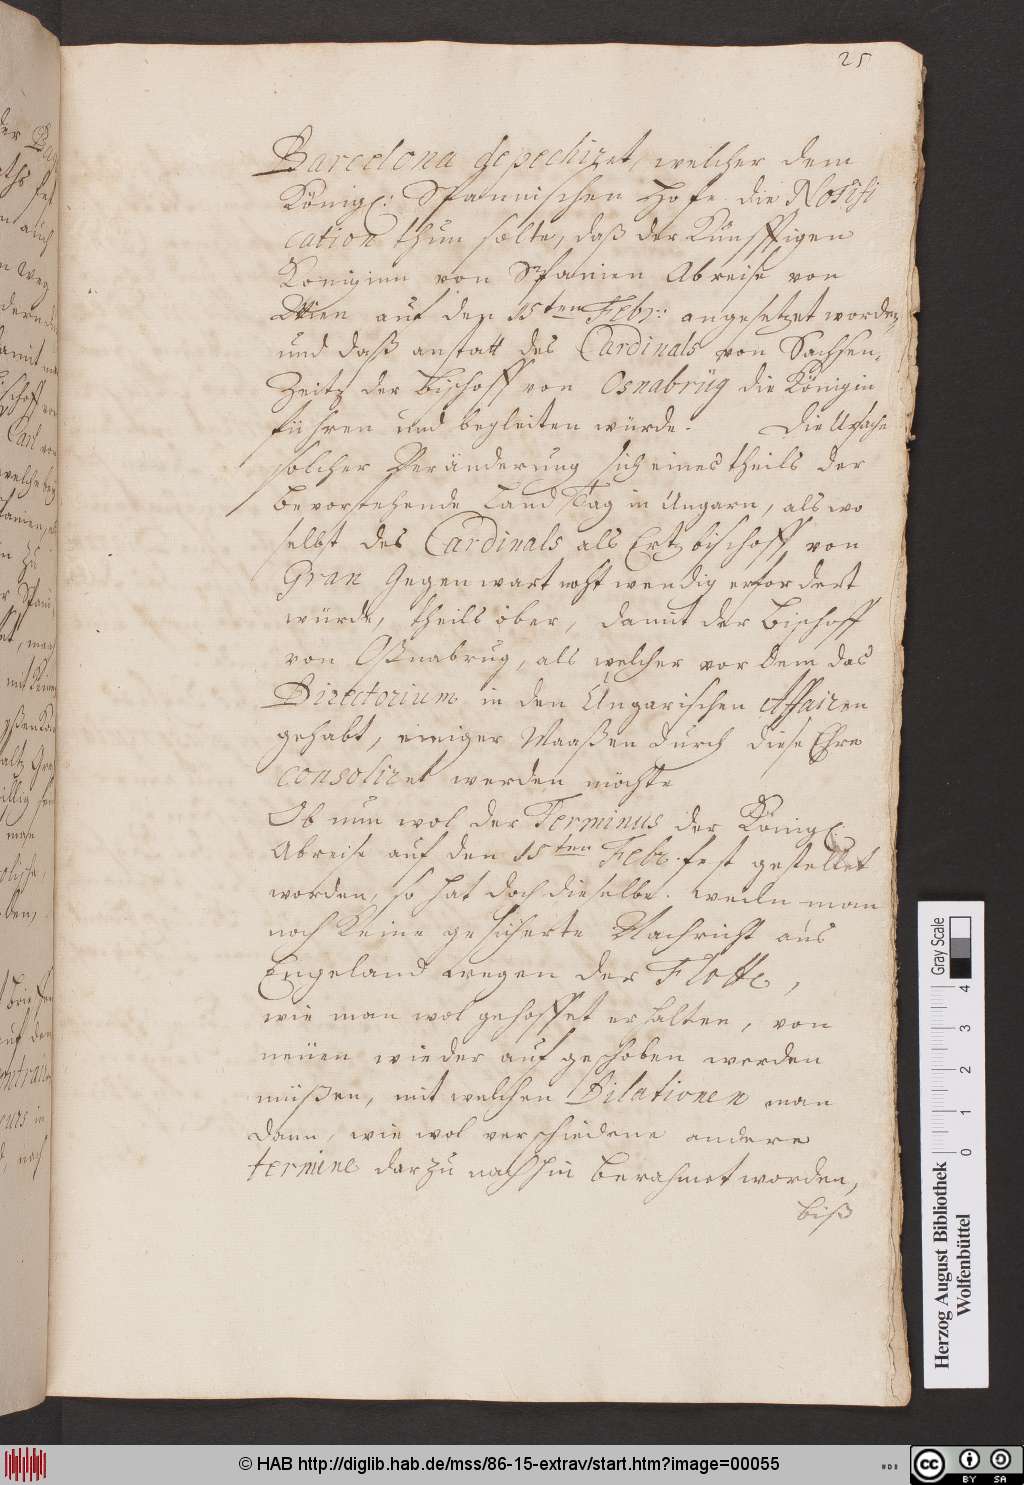 25
Barcelona depechiret, welcher dem
Königl: Spannischen Hofe die Notifi
cation thun solte, daß der Künfftigen
Koniginn von Spanien Abreise von
Wien auf den 15ten Febr: angesetzet worden,
und daß anstatt des Cardinals von Sachsen-
Zeitz der Bischoff von Osnabrüg die Königin
führen und begleiten würde. Die Ursache
solcher Veränderung sich eines theils der
bevorstehende Land Tag in Ungarn, als wo
selbst des Cardinals als Ertzbischoff von
Gran Gegenwart noht wendig erfordert
würde, theils aber, damit der Bischoff
von Oßnabrug, als welcher vor dem das
Directorium in den Ungarischen Affairen
gehabt, einiger Maaßen durch diese Ehre
consoliret werden möchte
Ob nun wol der Terminus der Königl.
Abreise auf den 15ten Febr. fest gestellet
worden, so hat doch dieselbe. weiln man
noch keine gesicherte Nachricht aus
Engeland wegen der Flotte,
wie man wol gehoffet erhalten, von
neüen wieder auf geschoben werden
müßen, mit welchen Dilationen man
dann, wie wol verschiedene andere
termine darzu nach hin berahmet worden,
biß
der
auch
Carl von
welche bey
in zu
Herzog August Bibliothek
Wolfenbüttel
Gray Scale
0 1 2 3 4
© HAB http://diglib.hab.de/mss/86-15-extrav/start.htm?image=00055
cc BY SA